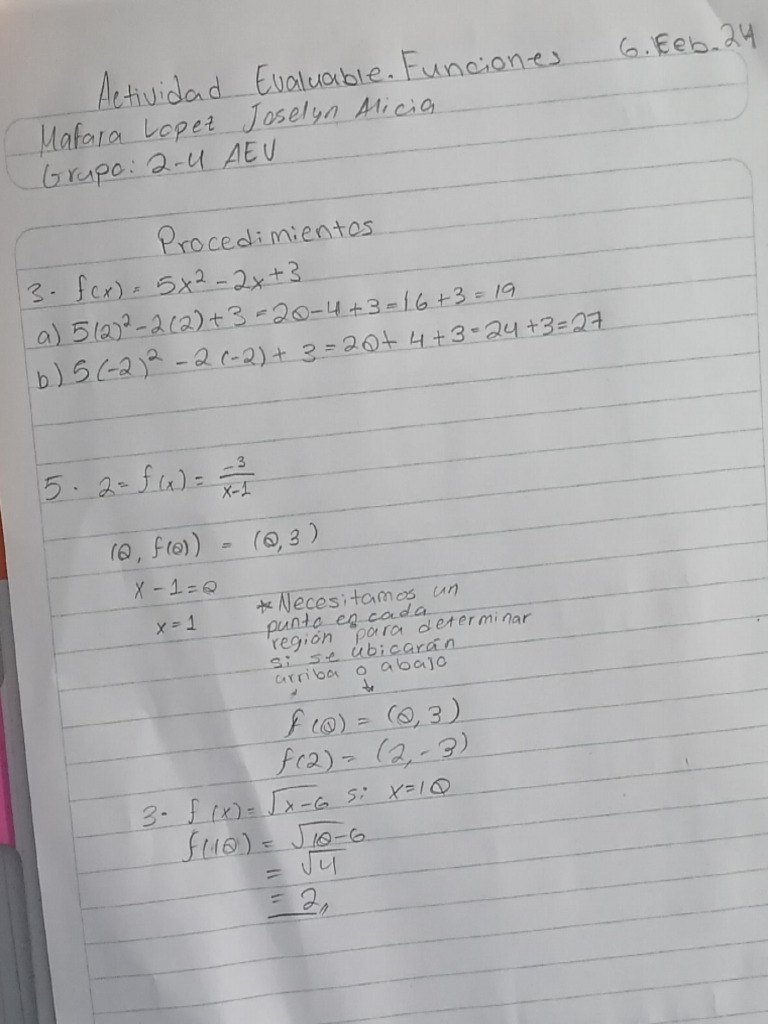 Actividad Evaluable. Funciones 6. Feb. 24
Mafara Lopez Joselyn Alicia
Grupo: 2-4 AEV
Procedimientos
3. f(x) = 5x² - 2x + 3
a) 5(2)² - 2(2) + 3 = 20 - 4 + 3 = 16 + 3 = 19
b) 5(-2)² - 2(-2) + 3 = 20 + 4 + 3 = 24 + 3 = 27
5. 2- f(x) = -3/x-1
(0, f(0)) = (0, 3)
x - 1 = 0
x = 1
* Necesitamos un
punto en cada
región para determinar
si se ubicarán
arriba o abajo
↓
f(0) = (0, 3)
f(2) = (2, -3)
3- f(x) = √x-6 si x=10
f(10) = √10-6
= √4
= 2,,